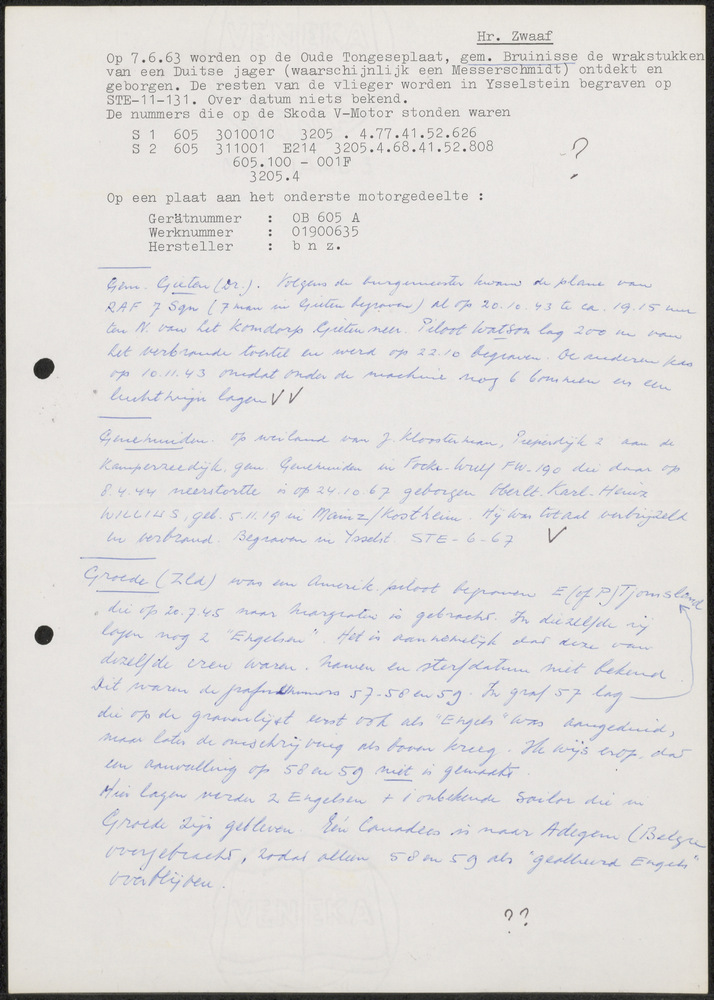 Hr. Zwaaf
Op 7.6.63 worden op de Oude Tongeseplaat, gem. Bruinisse de wrakstukken
van een Duitse jager (waarschijnlijk een Messerschmidt) ontdekt en
geborgen. De resten van de vlieger worden in Ysselstein begraven op
STE-11-131. Over datum niets bekend.
De nummers die op de Skoda V-Motor stonden waren
S 1 605 301001C 3205 . 4.77.41.52.626
S 2 605 311001 E214 3205.4.68.41.52.808
605.100 - 001F
3205.4
?
Op een plaat aan het onderste motorgedeelte :
Gerätnummer : OB 605 A
Werknummer : 01900635
Hersteller : b n z.
Gem. Gieten (Dr.). Volgens de burgemeester kwam de plane van
RAF 7 Sqn (7 man in Gieten begraven) al op 20.10.43 te ca. 19.15 uur
ten N. van het komdorp Gieten neer. Piloot Watson lag 200 m van
het verbrande toestel en werd op 22.10 begraven. De anderen pas
op 10.11.43 omdat onder de machine nog 6 bommen en een
luchtmijn lagen √ √
Genemuiden. Op weiland van J. Kloosterman, Pieperdijk 2 aan de
Kamperzeedijk, gem. Genemuiden is Focke-Wulf FW-190 die daar op
8.4.44 neerstortte is op 24.10.67 geborgen Oberlt. Karl-Heinz
WILLIUS, geb. 5.11.19 in Mainz/Kostheim. Hij was totaal verbrijzeld
en verbrand. Begraven in Ysselst. STE-6-67 √
Groede (Zld) was een Amerik. piloot begraven E (of P) Tjomsland
, die op 20.7.45 naar Margraten is gebracht. In diezelfde rij
lagen nog 2 "Engelsen". Het is aannemelijk dat deze van
dezelfde crew waren. Namen en sterfdatum niet bekend.
Dit waren de grafnummers 57-58 en 59. In graf 57 lag
die op de gravenlijst eerst ook als "Engels" was aangeduid,
maar later de omschrijving als boven kreeg. Ik wijs erop, dat
een aanvulling op 58 en 59 niet is gemaakt.
Hier lagen verder 2 Engelsen + 1 onbekende Sailor die in
Groede zijn gebleven. Eén Canadees is naar Adegem (Belgie
overgebracht, zodat alleen 58 en 59 als "geallieerd Engels"
overblijven.
??